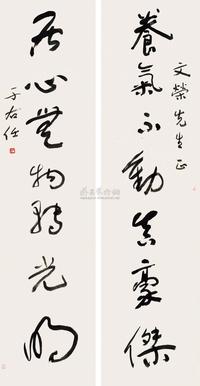 文榮先生正
養氣不動真豪傑
居心無物轉光明
于右任